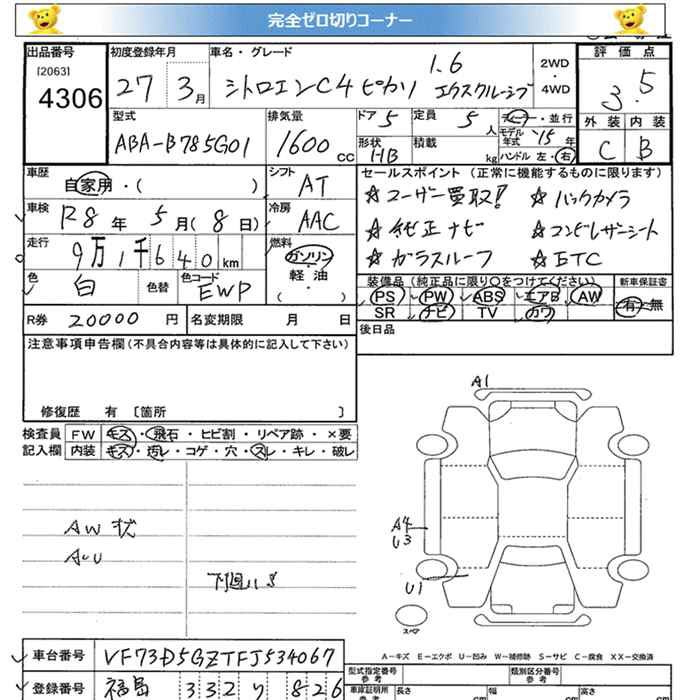 完全ゼロ切りコーナー
出品番号 初度登録年月 車名・グレード 2WD・4WD 評価点
[2063]
4306 27 3月 シトロエンC4ピカソ 1.6 エクスクルーシブ 3.5
型式 排気量 ドア 5 定員 5人 ディーラー・並行 外装 内装
ABA-B785G01 1600cc 形状 HB 積載 kg モデル年式 '15年 ハンドル 左・右 C B
車歴 自家用・( ) シフト AT セールスポイント(正常に機能するものに限ります)
車検 R8年 5月(8日) 冷房 AAC ☆ユーザー買取! ☆バックカメラ
走行 9万1千640km 燃料 ガソリン・軽油 ( ・ ) ☆純正ナビ ☆コンビレザーシート
色 白 色替 色コード EWP ☆ガラスルーフ ☆ETC
装備品(純正品に限り○をつけてください) 新車保証書
PS PW ABS エアB AW 有・無
SR ナビ TV カワ
R券 20000円 名変期限 月 日 後日品
注意事項申告欄(不具合内容等は具体的に記入して下さい)
修復歴 有 [箇所 ]
検査員記入欄 FW キズ・飛石・ヒビ割・リペア跡・×要
内装 キズ・汚レ・コゲ・穴・スレ・キレ・破レ
A1
AW状
A4
U3
U1
スペア
A-キズ E-エクボ U-凹み W-補修跡 S-サビ C-腐食 XX-交換済
車台番号 VF73D5GZTFJ534067
登録番号 福島 332 リ 826
型式指定番号 参考 類別区分番号 参考
車庫証明用 参考 長さ cm 幅 cm 高さ cm